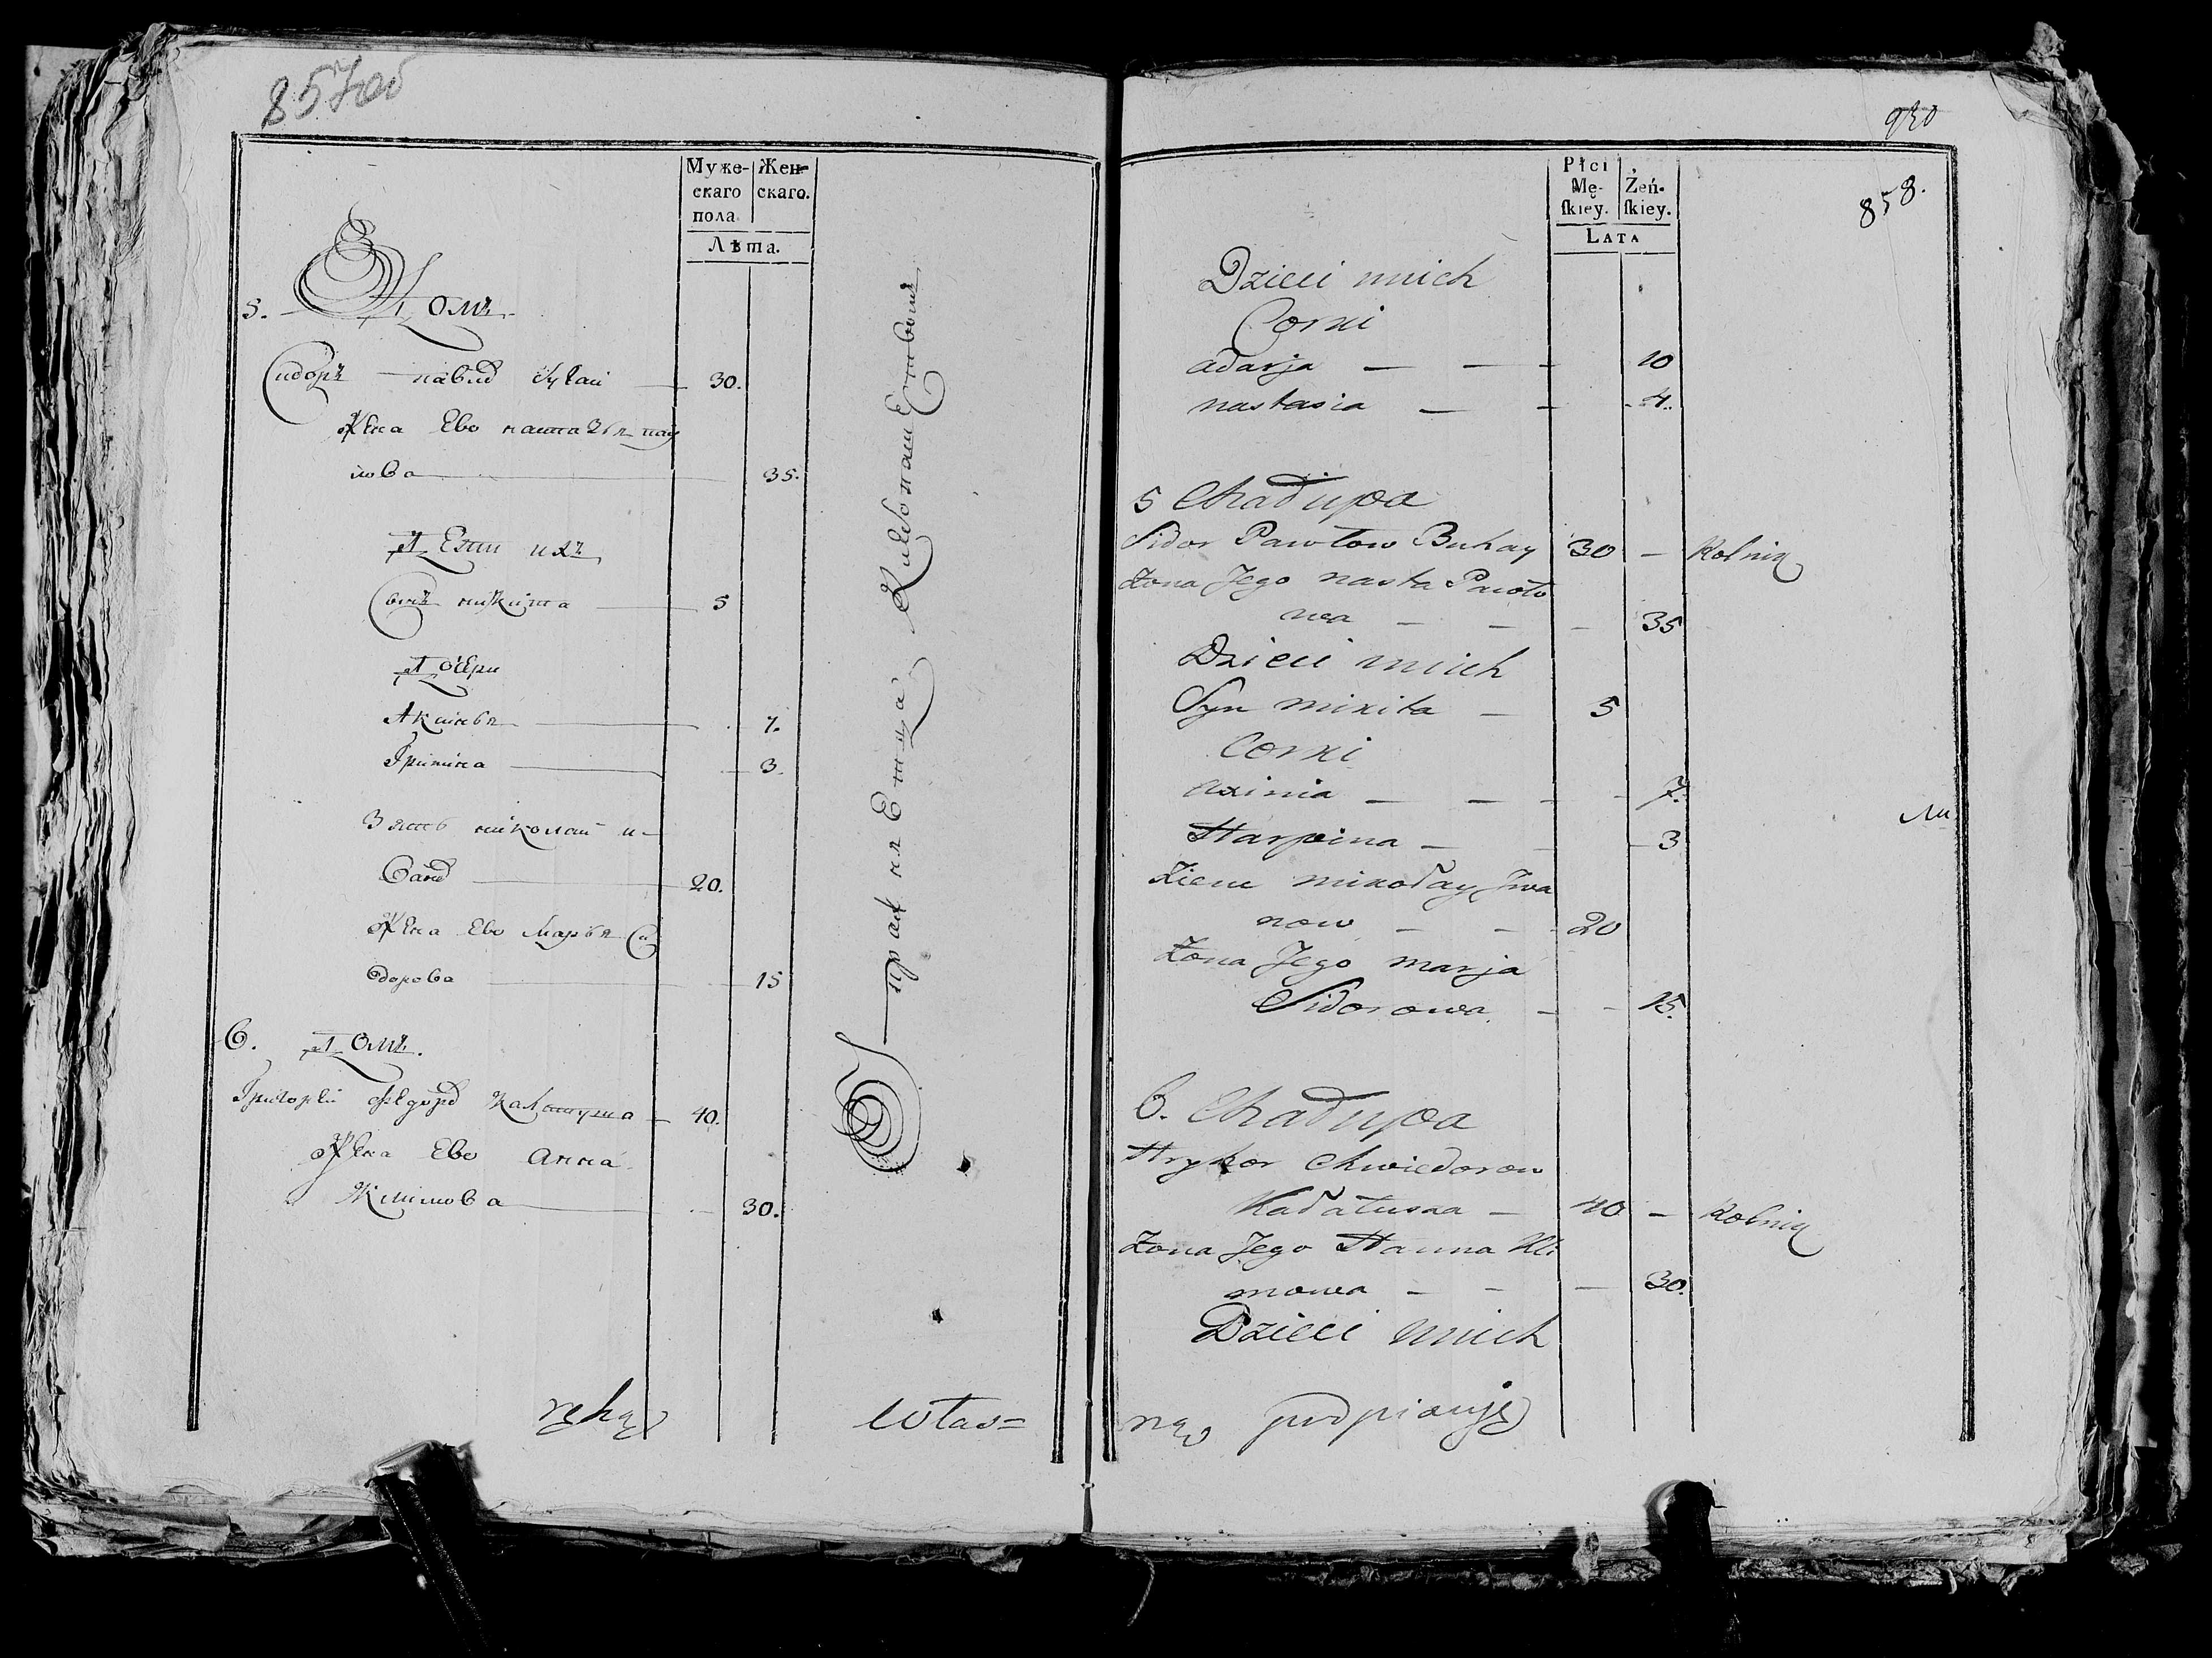 857об
Муже-
скаго
пола
Жен-
скаго.
Лѣта.
5. Домъ
Сидоръ павло Бугай 30.
Жена Ево настазья пау
лова 35.
Дети ихъ
Сынъ никита 5
Дочери
Аксинья 7.
Грипина 3.
Зять николай и-
вано 20.
Жена Ево Марья Си
дорова 15
6. Домъ.
Григорей федоро Калатуша 40.
Жена Ево Анна
Климова 30.
ręką włas=
930
858.
Płci
Mę-
ſkiey.
Żeń-
ſkiey.
LATA
Dzieci unich
Corki
adarja — — — 10
nastasia — — 4.
5 Chałupa
Sidor Pawłow Buhay 30 — Rolnik
Żona Jego nasta Pawło
wa — — — 35
Dzieci unich
Syn mikita — 5
Corki
axinia — — — 7.
Harpina — — 3
Zienc mikołay Jwa
now — — 20
Żona Jego marja
Sidorowa — — 15.
6. Chałupa
Hryhor Chwiedorow
Kałatusza — 40 — Rolnik
Żona Jego Hanna Kli
mowa — — — 30.
Dzieci unich
ną podpisuję